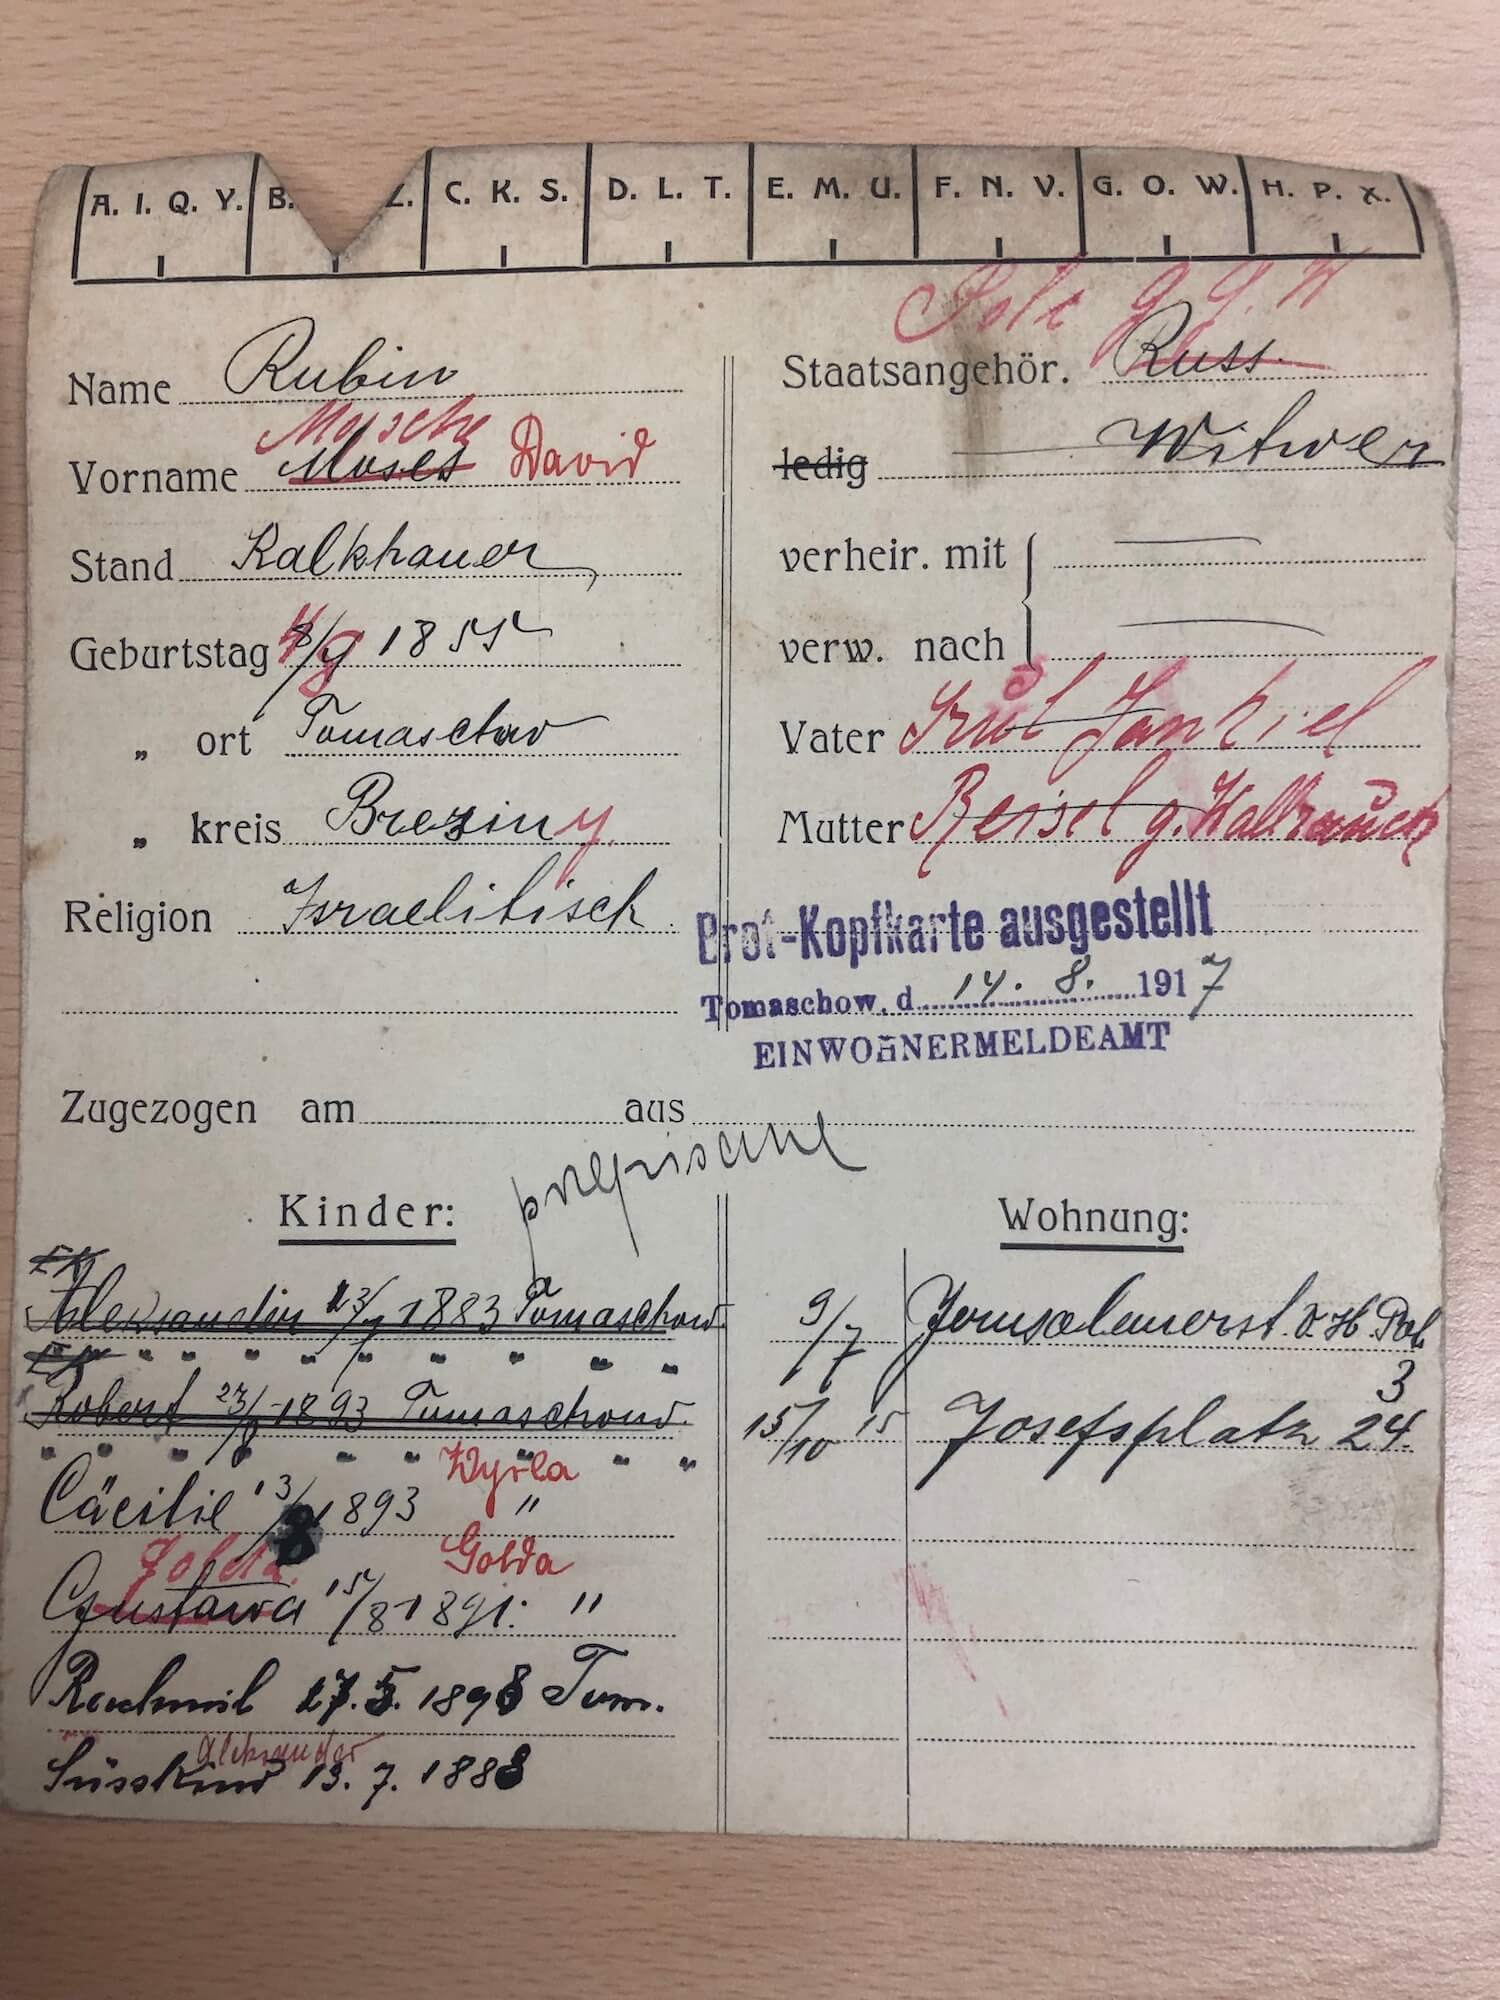 A. I. Q. Y. B. Z. C. K. S. D. L. T. E. M. U. F. N. V. G. O. W. H. P. X.
Pole
Name Rubin
Staatsangehör. Russ.
Mosche
Vorname Moses David
ledig Witwer
Stand Kalkhauer
verheir. mit
Geburtstag /9 1855
verw. nach
„ ort Tomaschow
Vater Srul Jankiel
„ kreis Breziny
Mutter Beisel g.
Religion Israelitisch
Brot-Kopfkarte ausgestellt
Tomaschow, d. 14. 8. 1917
EINWOHNERMELDEAMT
Zugezogen am aus
Kinder:
Wohnung:
1883 Tomaschow
9/7 Jerusalemerst. v. H. Pol
3
Robert 1893 Tomaschow
15/10 15 Josefsplatz 24.
Wyrla
Cäcilie 13/8 1893 "
Golda Golda
Gustawa 15/8 1891. "
Rachmil 17. 5. 1898 Tom.
Aleksander
Süsskind 13. 7. 1888